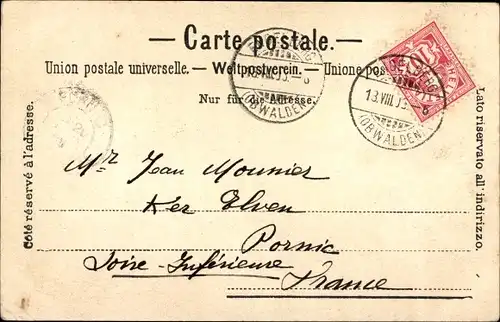 — Carte postale. —
Union postale universelle. — Weltpostverein. — Unione pos
Nur für die Adresse.
ENGELBERG
13.VIII.03.
(OBWALDEN)
Côté réservé à l'adresse.
Lato riservato all' indirizzo.
Mr Jean Mounier
Ker Elven
Pornic
Loire-Inférieure
France